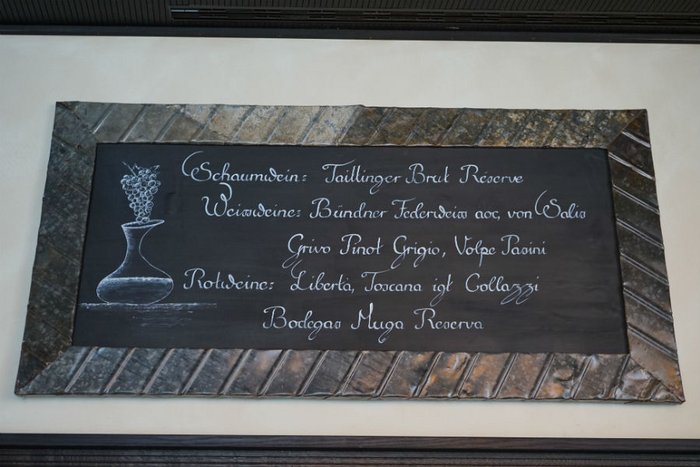 Schaumwein: Taittinger Brut Réserve
Weissweine: Bündner Federweiss aoc, von Salis
Grivo Pinot Grigio, Volpe Pasini
Rotweine: Libertà, Toscana igt Collazzi
Bodegas Muga Reserva